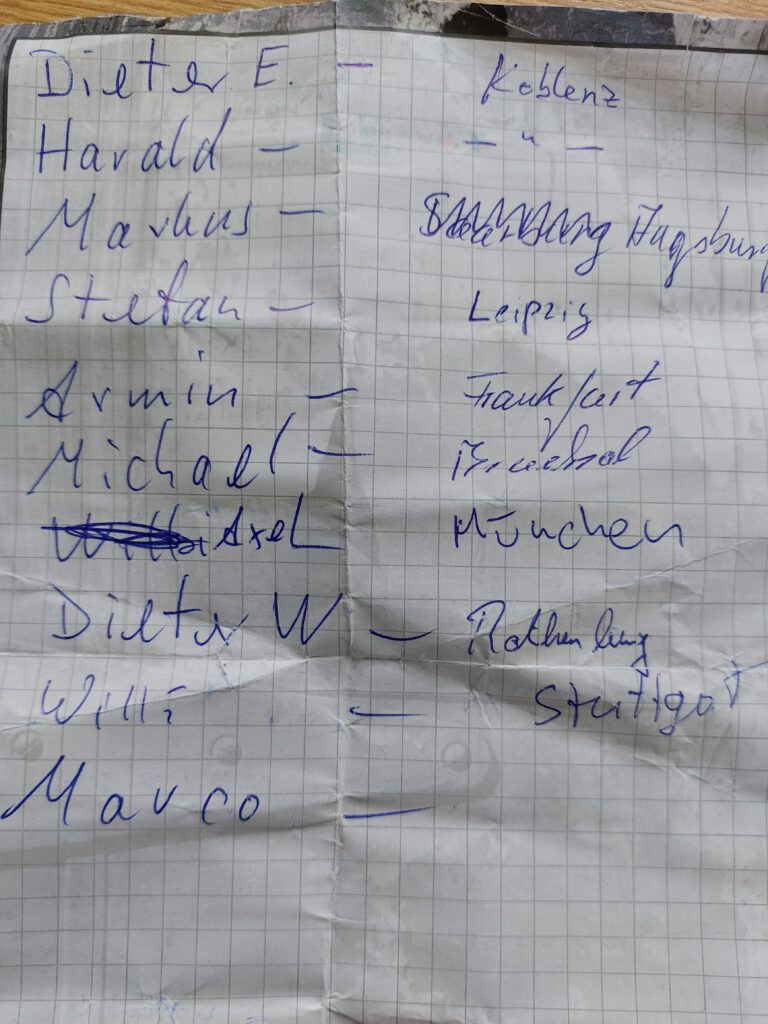 Dieter E. — Koblenz
Harald — — " —
Markus — Augsburg
Stefan — Leipzig
Armin — Frankfurt
Michael — Bruchsal
Axel München
Dieter W — Rothenburg
Willi — Stuttgart
Marco —